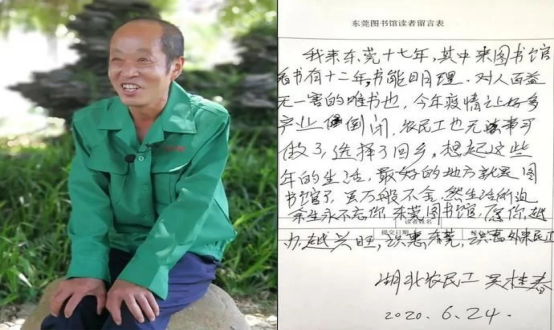 东莞图书馆读者留言表
我来东莞十七年,其中来图书馆
看书有十二年,书能明理,对人百益
无一害的唯书也,今年疫情让好多
产业倒闭,农民工也无事可
做了,选择了回乡,想起这些
年的生活,最好的地方就是图
书馆了,虽万般不舍,然生活所迫,
余生永不忘你,东莞图书馆,愿你越
办越兴旺,识惠东莞,识惠外来民工
湖北农民工 吴桂春
2020.6.24.